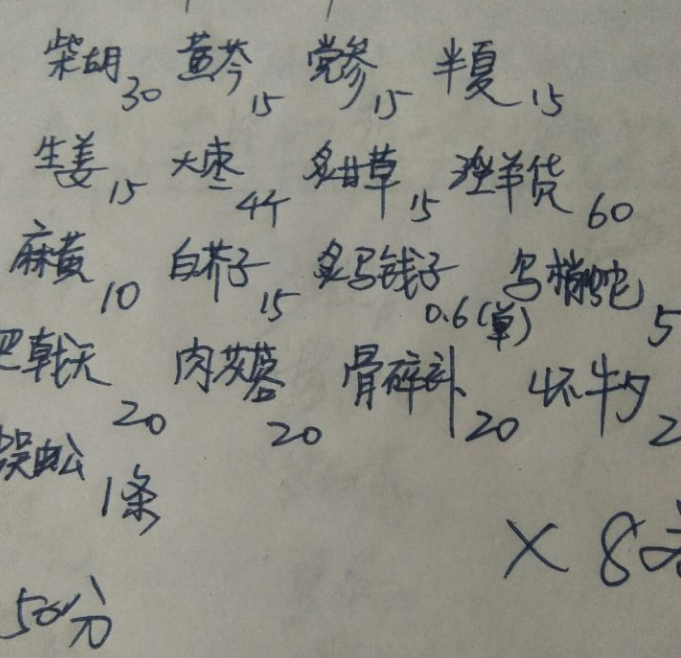 柴胡30 黄芩15 党参15 半夏15
生姜15 大枣4个 炙甘草15 淫羊
麻黄10 白芥子15 炙马钱子0.6(单) 乌梢蛇5
巴戟天20 肉苁蓉20 骨碎补20 怀牛夕2
蜈蚣1条
×8
50分